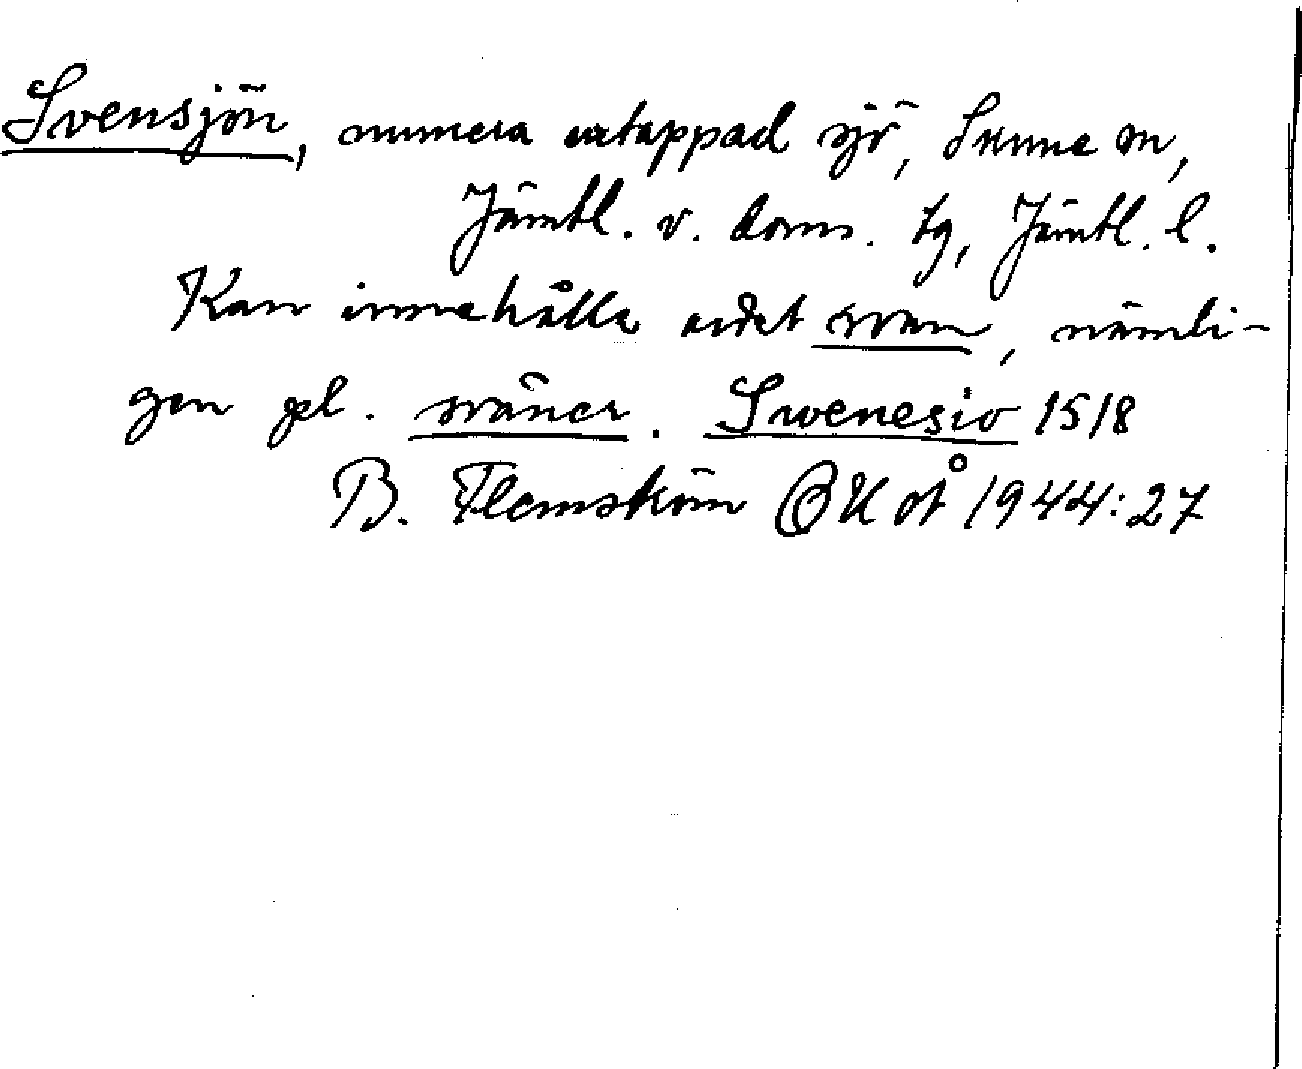 Svensjön, numera urtappad sjö, Sunne sn,
Jämtl. v. doms. tg, Jämtl. l.
Kan innehålla ordet svan, nämli-
gen pl. sväner. Swenesio 1518
B. Flemström OUÅ 1944:27